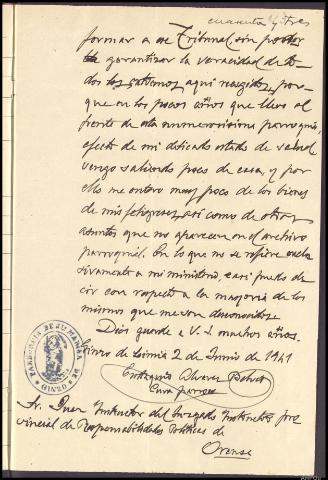 cuarenta y tres
formar a ese Tribunal, sin poder
garantizar la veracidad de to-
dos los extremos aquí recogidos, por-
que en los pocos años que llevo al
frente de esta numerosísima parroquia,
efecto de mi delicado estado de salud
vengo saliendo poco de casa, y por
ello me entero muy poco de los bienes
de mis feligreses, así como de otros
asuntos que no aparecen en el archivo
parroquial. En lo que no se refiere exclu-
sivamente a mi ministerio, casi puedo de-
cir con respecto a la mayoría de los
mismos que me son desconocidos.
Dios guarde a V. S. muchos años.
Ginzo de Limia 2 de Junio de 1941
Eutiquio Alvarez
Cura párroco
PARROQUIA DE STA MARINA DE GINZO
Sr. Juez Instructor del Juzgado Instructor pro
vincial de Responsabilidades Políticas de
Orense